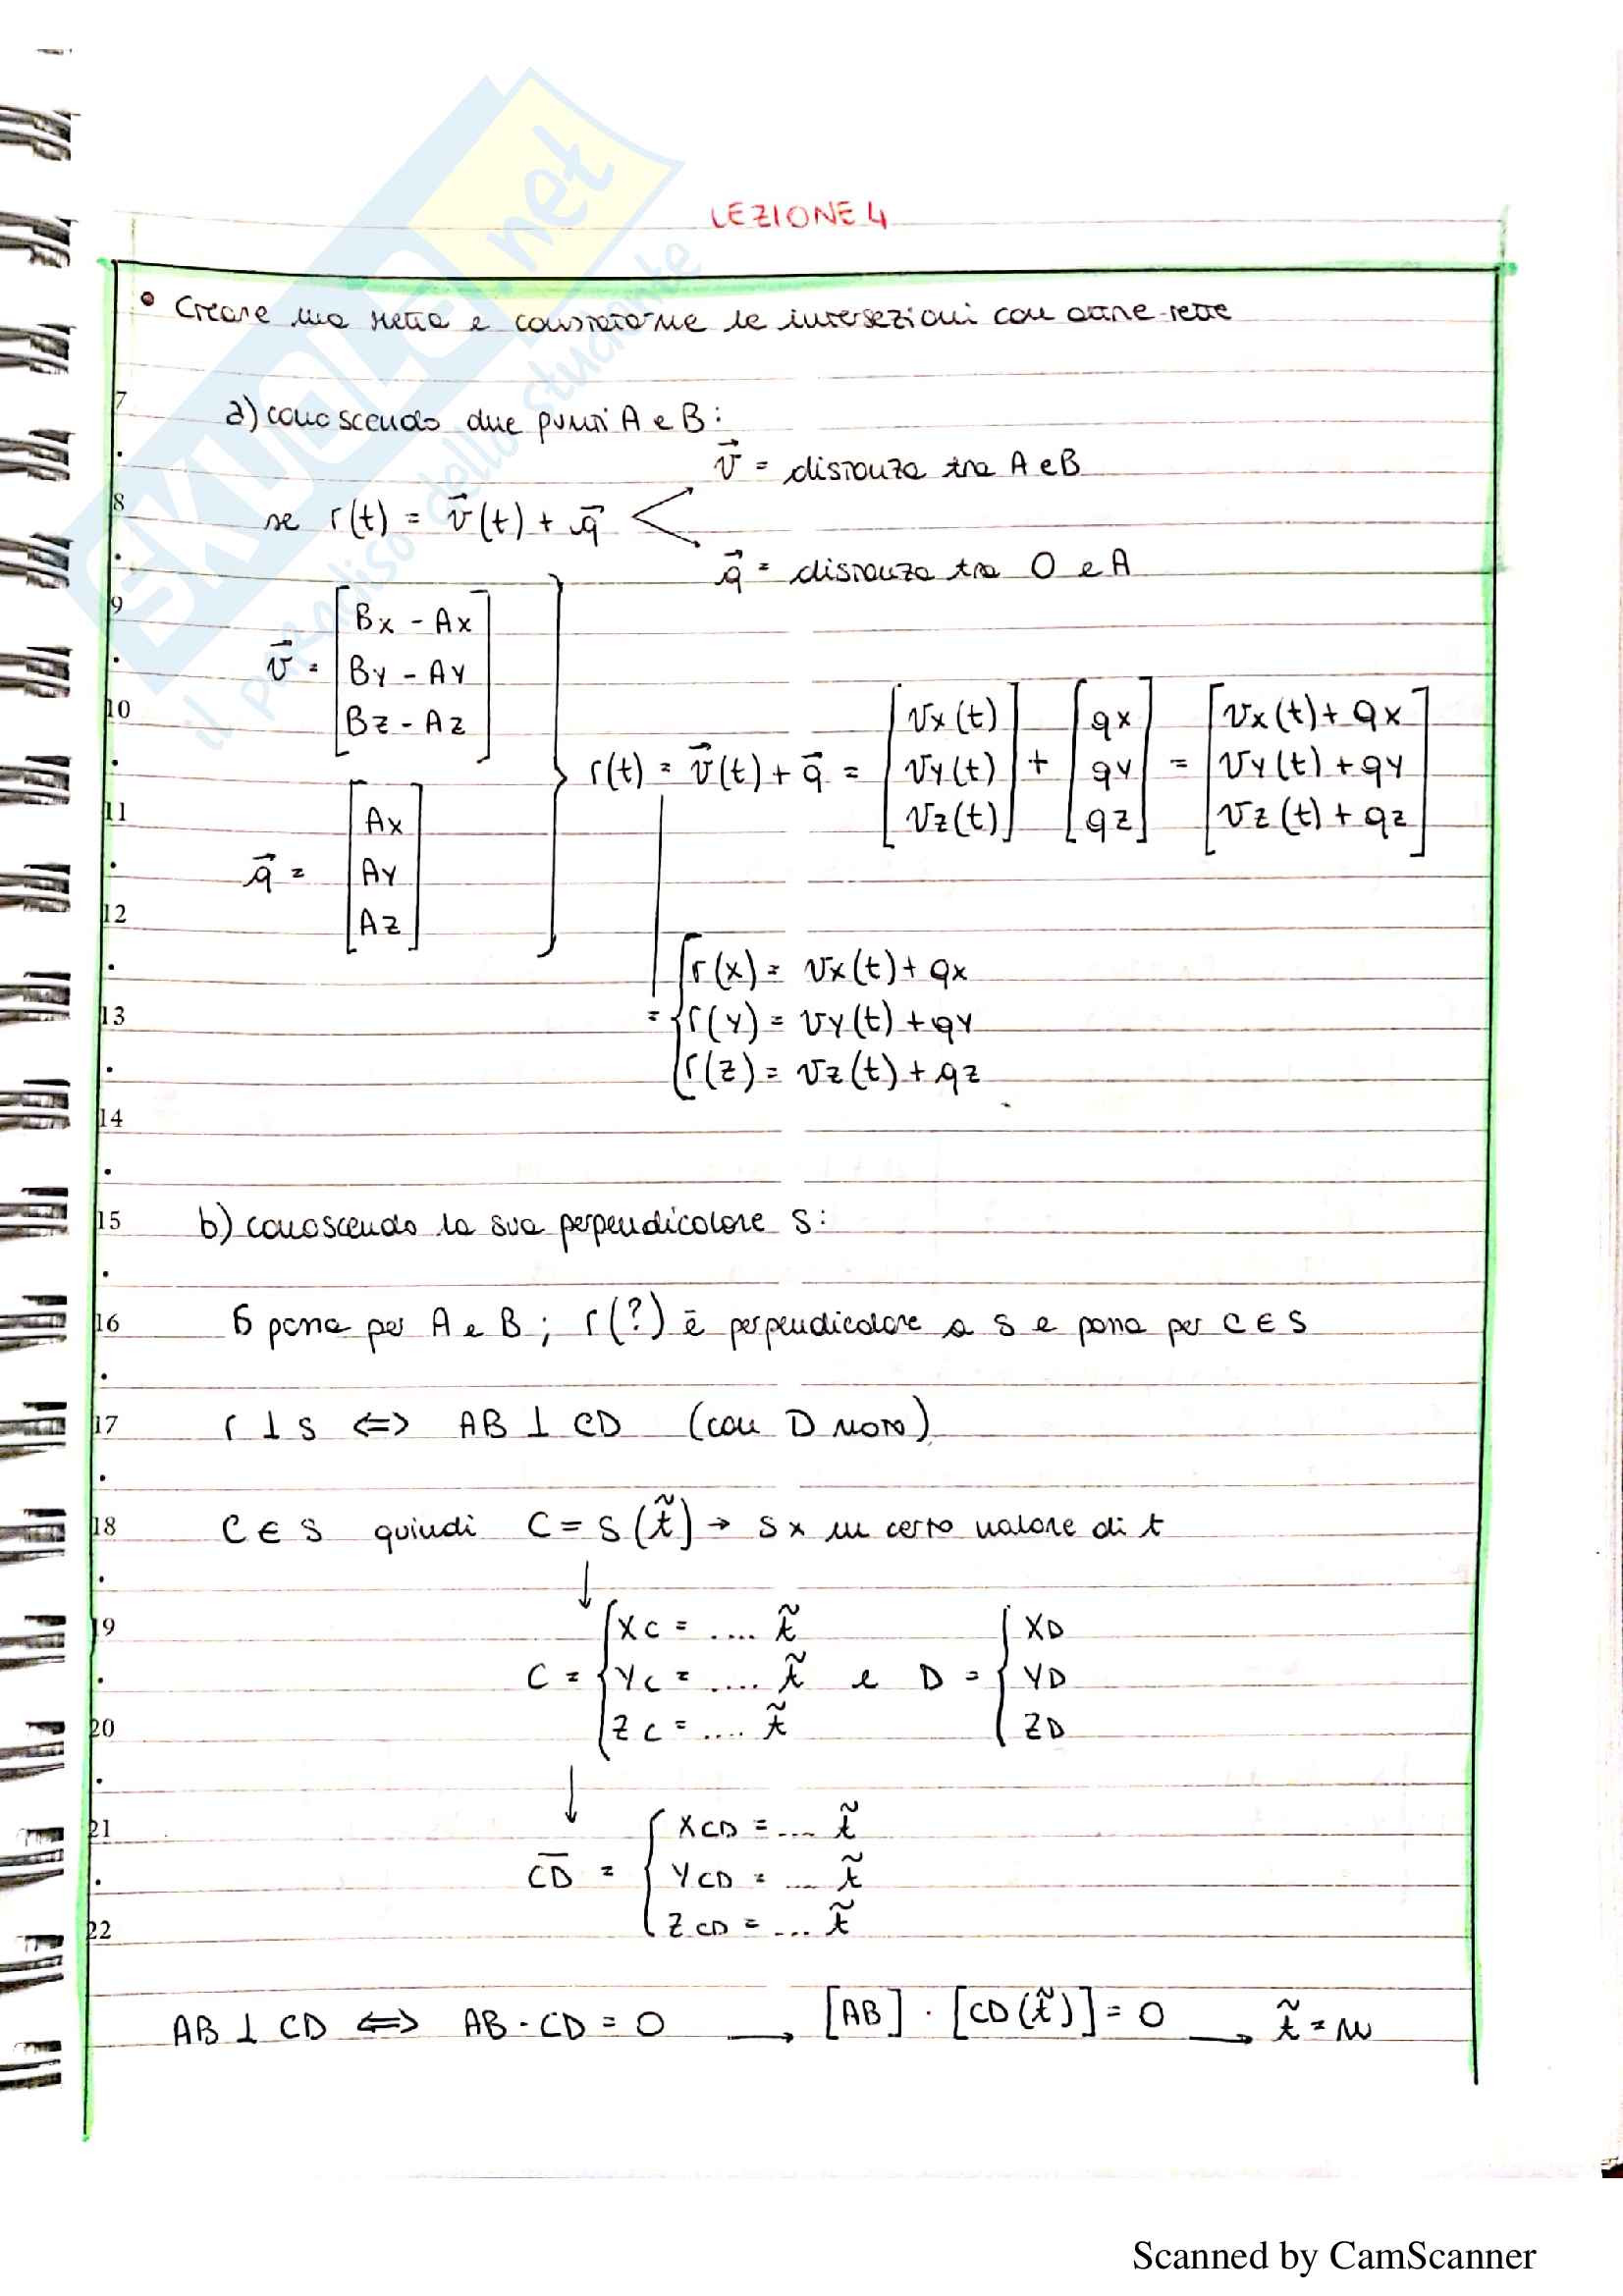 LEZIONE 4
• Creare una retta e constatarne le intersezioni con altre rette
7
a) conoscendo due punti A e B:
v⃗ = distanza tra A e B
8
se r(t) = v⃗(t) + q⃗
q⃗ = distanza tra O e A
9
v⃗ = [Bx - Ax
By - Ay
Bz - Az]
10
r(t) = v⃗(t) + q⃗ = [vx(t) vy(t) vz(t)] + [qx qy qz] = [vx(t) + qx vy(t) + qy vz(t) + qz]
11
q⃗ = [Ax
Ay
Az]
12
= { r(x) = vx(t) + qx
13
r(y) = vy(t) + qy
r(z) = vz(t) + qz
14
15
b) conoscendo la sua perpendicolare s:
16
s passa per A e B ; r(?) è perpendicolare a s e passa per C ∈ s
17
r ⊥ s ⇔ AB ⊥ CD (con D noto)
18
C ∈ s quindi C = s(t̃) → s x un certo valore di t
↓
19
C = { xC = .... t̃
yC = .... t̃
zC = .... t̃
e D = { xD
yD
zD
20
↓
21
CD = { xCD = .... t̃
yCD = .... t̃
zCD = ... t̃
22
AB ⊥ CD ⇔ AB · CD = 0 → [AB] · [CD(t̃)] = 0 → t̃ =
SKUOLA.net
il paradiso dello studente
Scanned by CamScanner